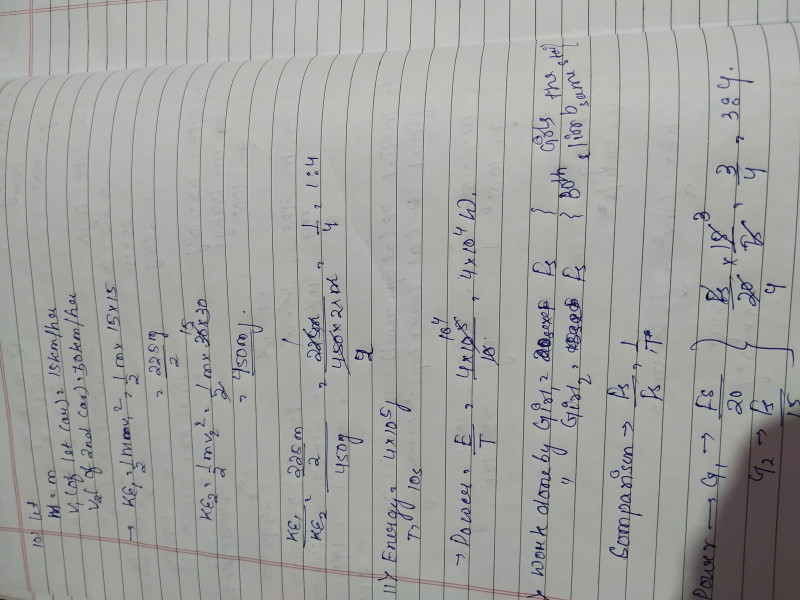 10) let
M = m
V₁ (of 1st car) = 15km/hr
Vel of 2nd car) = 30km/hr
→ KE₁ = 1/2 mv₁² = 1/2 m × 15×15
= 225m/2
KE₂ = 1/2 mv₂² = 1/2 m × 30×30
= 450m j.
KE₁/KE₂ = 225m/2 / 450m = 225m / 450×2m = 1/4 = 1:4
11) Energy = 4×10⁵ j
T = 10s
→ Power = E/T = 4×10⁵/10 = 4×10⁴ W.
Work done by Girl₁ = Fs } Both Girls the
" Girl₂ = Fs { climb same
Comparison → Fs/Fs = 1/1
Power → G₁ → Fs/20 } Fs/20 × 15/Fs = 3/4 = 3:4.
G₂ → Fs/15